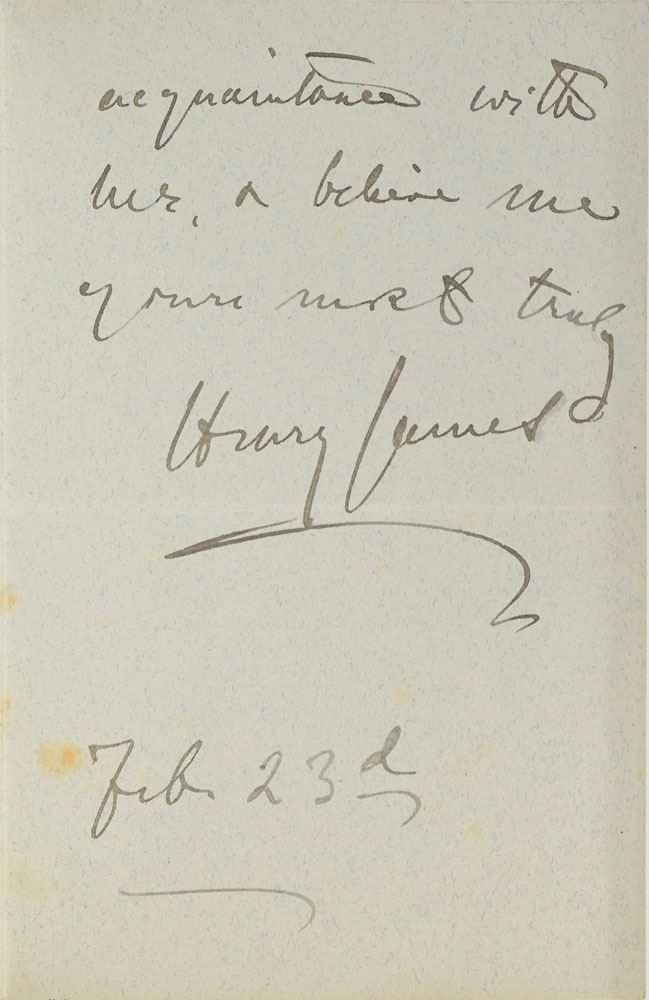 acquaintance with
her, & believe me
yours most truly
Henry James
Feb. 23d